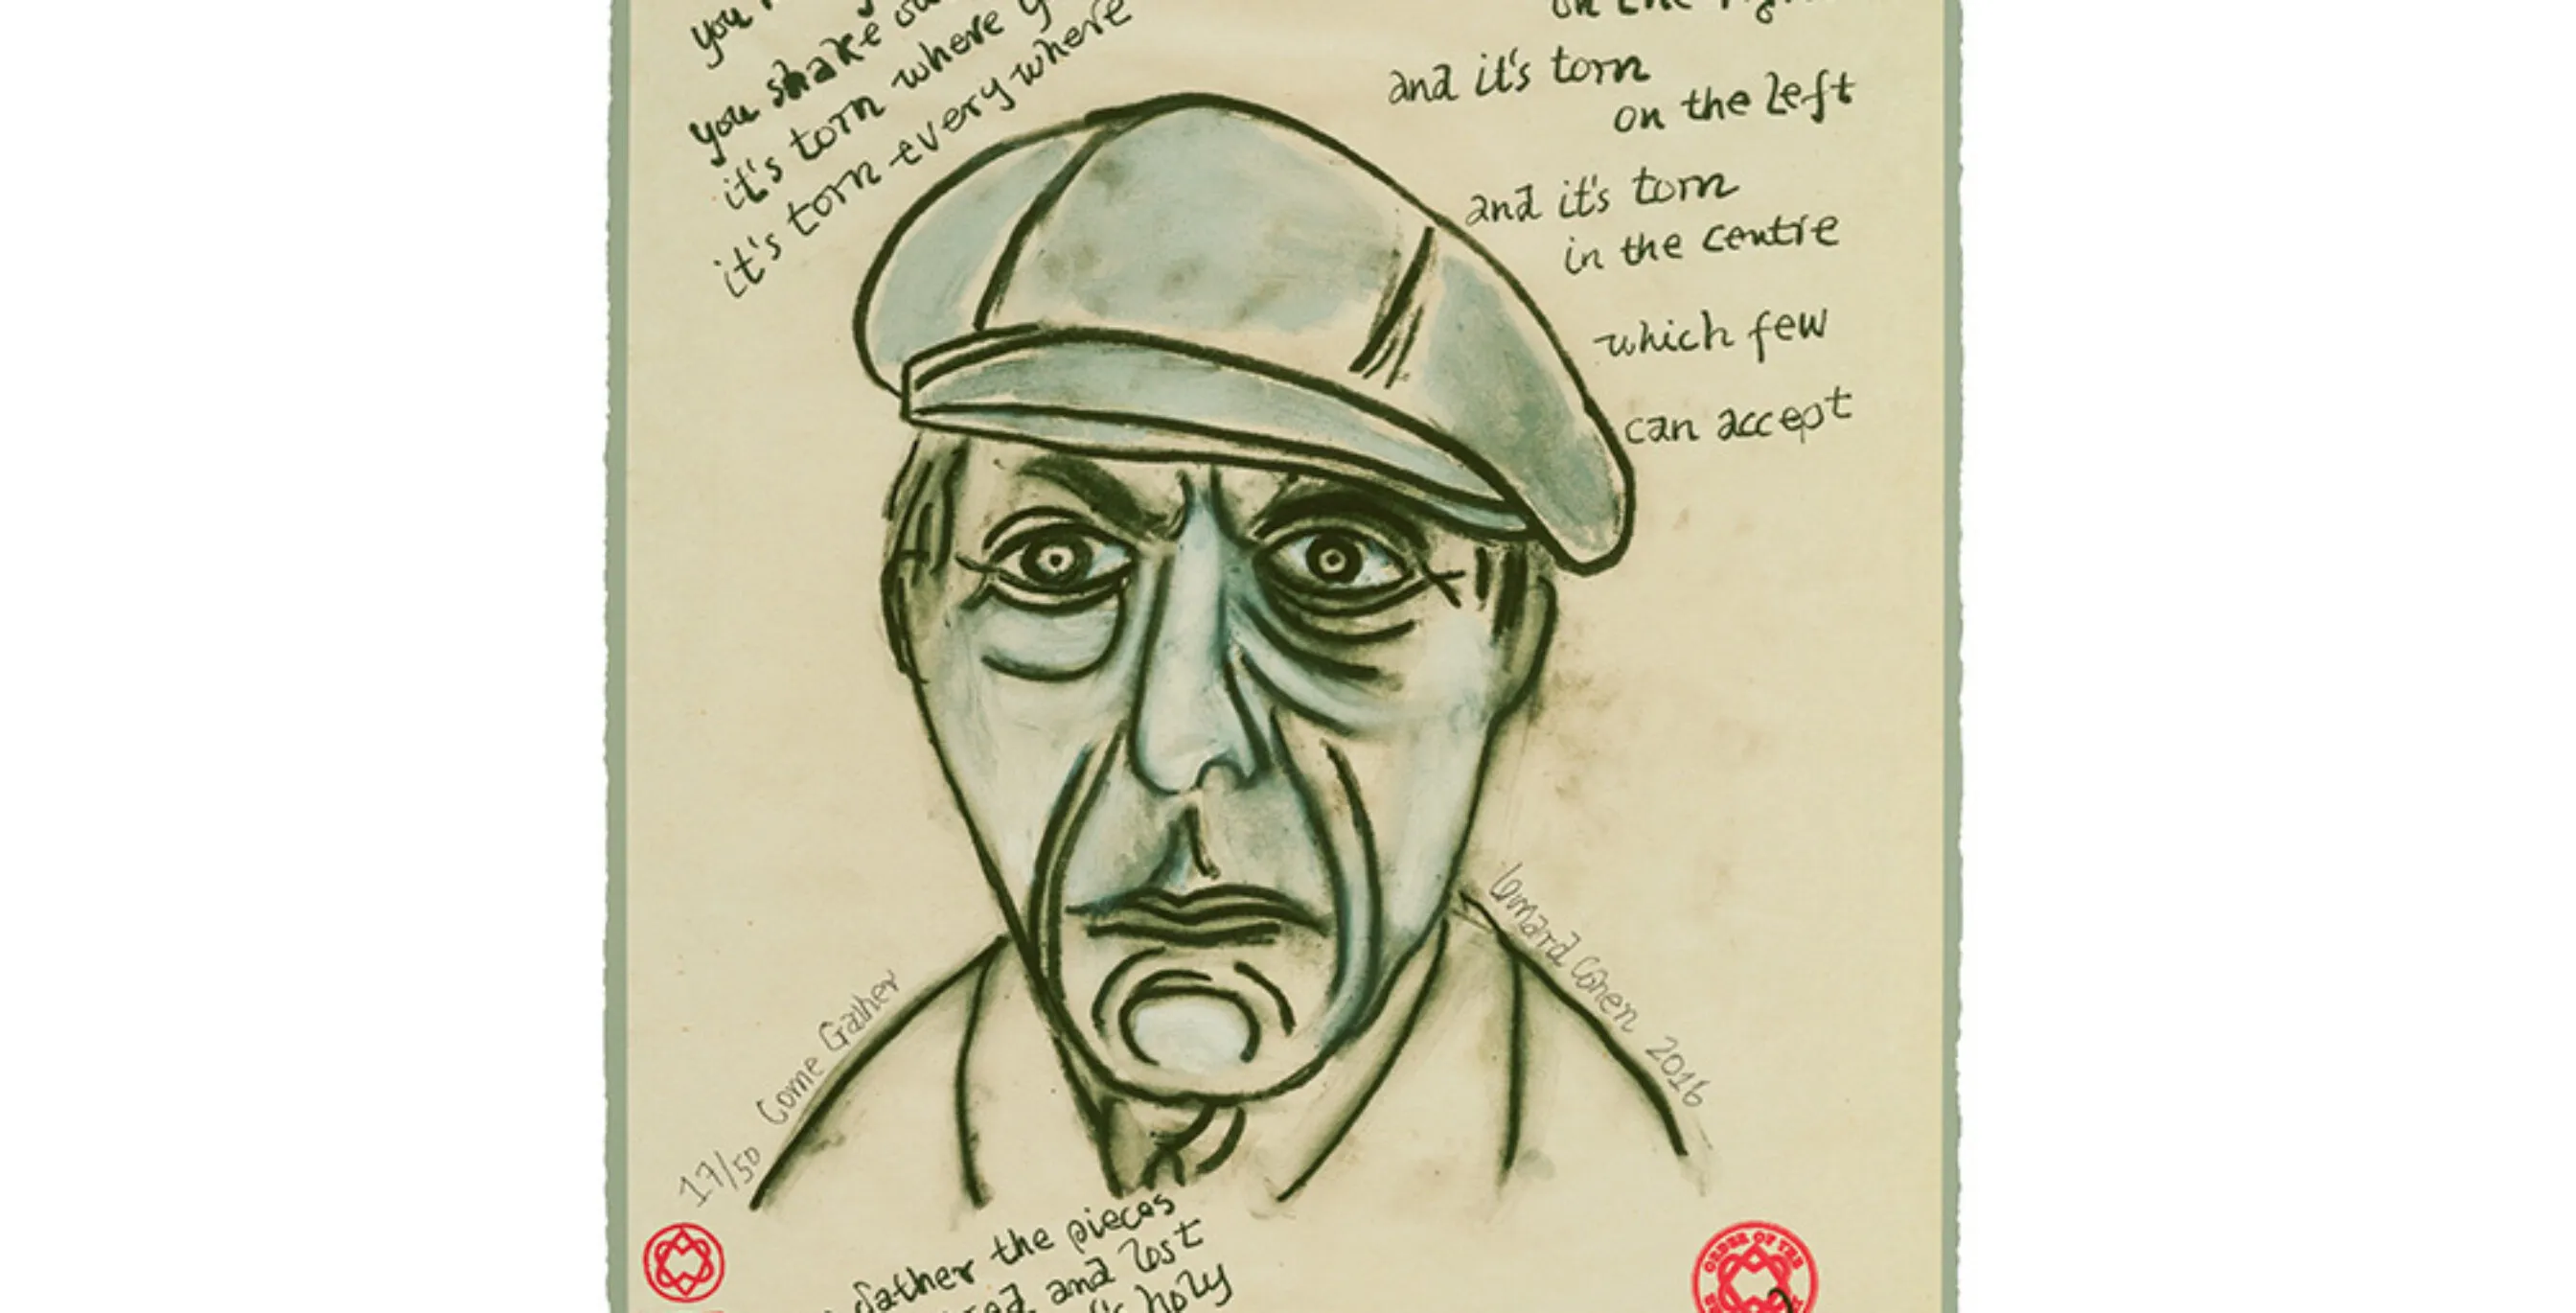 you
you shake
it's torn where
it's torn every where
on the
and it's torn
on the left
and it's torn
in the centre
which few
can accept
Leonard Cohen 2016
17/50 Come Gather
gather the pieces
and lost
holy
ORDER OF THE